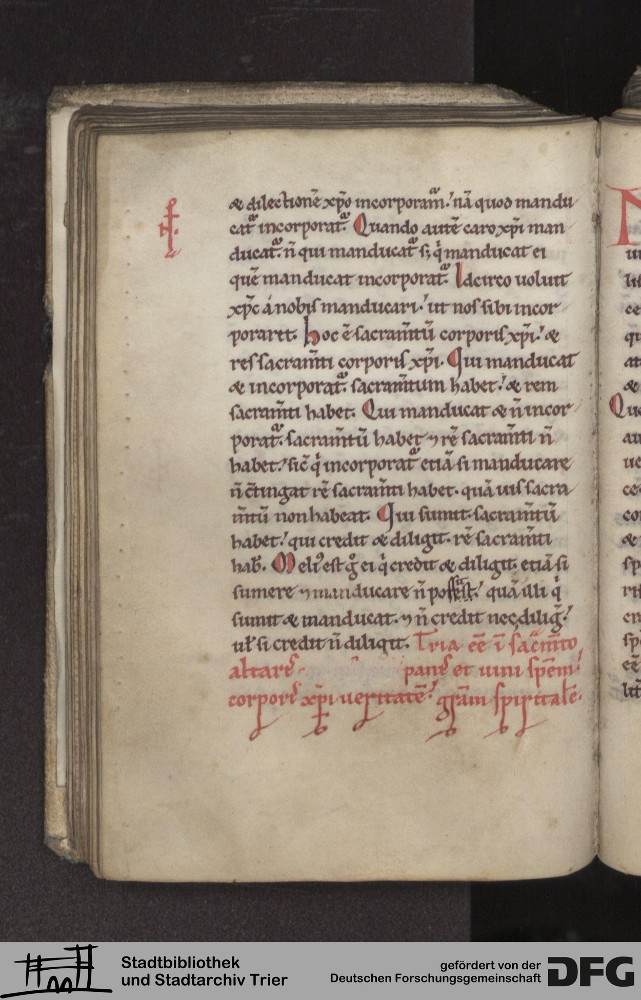 & dilectionē xp̄o incorporam̄. nā quod mandu
cat̄ incorporat̄. Quando autē caro xp̄i man
ducat̄. n̄ qui manducat̄ s; q̇ manducat ei
quē manducat incorporat̄. Idcirco voluit
xp̄c á nobis manducari. ut nos sibi incor
poraret. hoc ē sacram̄tū corporis xp̄i. &
res sacram̄ti corporis xp̄i. Qui manducat
& incorporat̄. sacram̄tum habet. & rem
sacram̄ti habet. Qui manducat & n̄ incor
porat̄. sacram̄tū habet ⁊ rē sacram̄ti n̄
habet. sic̄ q̇ incorporat̄ etiā si manducare
n̄ c̄tingat rē sacram̄ti habet. quā uis sacra
m̄tū non habeat. Qui sumit sacram̄tū
habet. qui credit & diligit. rē sacram̄ti
hab̄. Meli᷒ est ḡ ei q̇ credit & diligit. etiā si
sumere ⁊ manducare n̄ possit. quā illi q̇
sumit & manducat. ⁊ n̄ credit nec diliḡ.
ul̄ si credit n̄ diligit. Tria eē ī sac̄m̄to
altaris panis et uini sp̄em
corporis xp̄i ueritatē. gr̄am spiritalē.
Stadtbibliothek
und Stadtarchiv Trier
gefördert von der
Deutschen Forschungsgemeinschaft
DFG